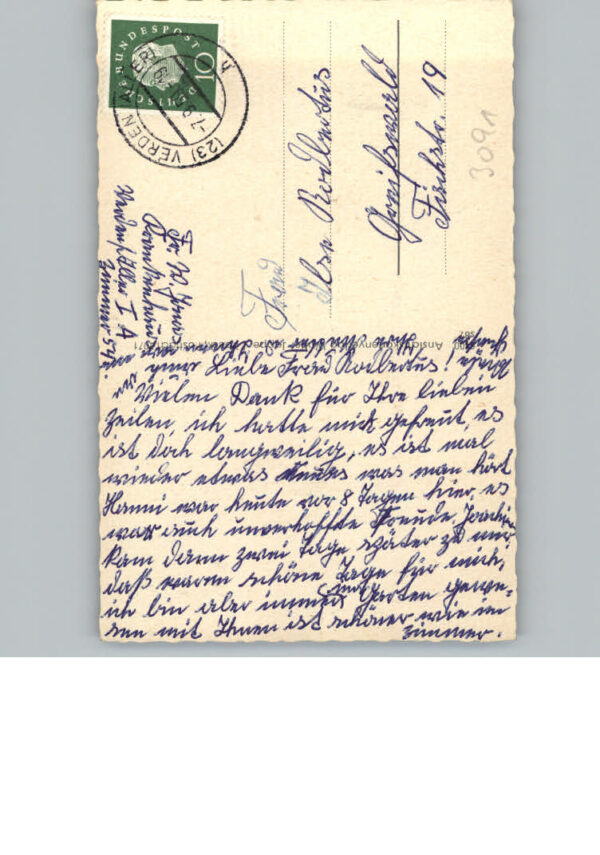 DEUTSCHE BUNDESPOST
10
(23) VERDEN
Frau
Ilse Rodbertus
Greifswald
Fischstr. 19
3091
Krankenhaus
Verden/Aller I A
Zimmer 54
Liebe Frau Rodbertus!
Vielen Dank für Ihre lieben
Zeilen, ich hatte mich gefreut, es
ist doch langweilig, es ist mal
wieder etwas neues was man hört
Hanni war heute vor 8 Tagen hier, es
war auch unverhoffte Freude, Joachim
kam dann zwei Tage später zu mir
daß waren schöne Tage für mich,
ich bin aber immer im Garten gewe=
sen mit Ihnen ist schöner wie im
Zimmer.